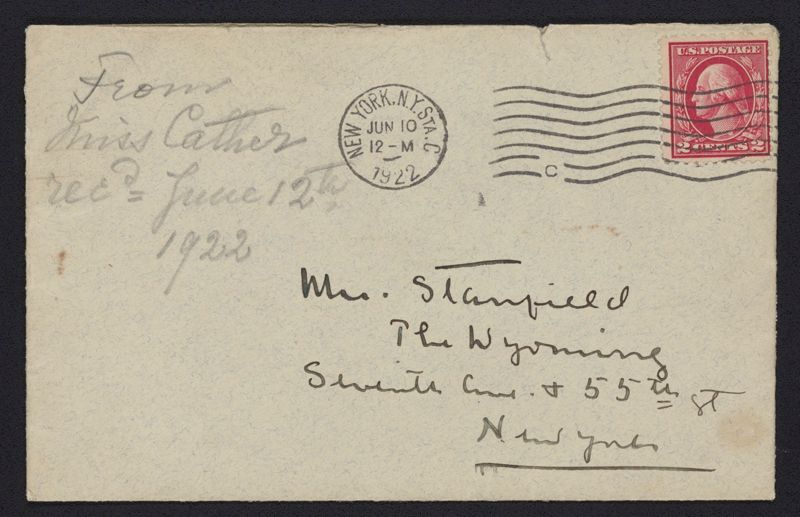 From
Miss Cather
rec'd= June 12th
1922
NEW YORK, N.Y. STA. C
JUN 10
12-M
1922
C
U.S. POSTAGE
2 CENTS 2
Mrs. Stanfield
The Wyoming
Seventh Ave. & 55th St
New York